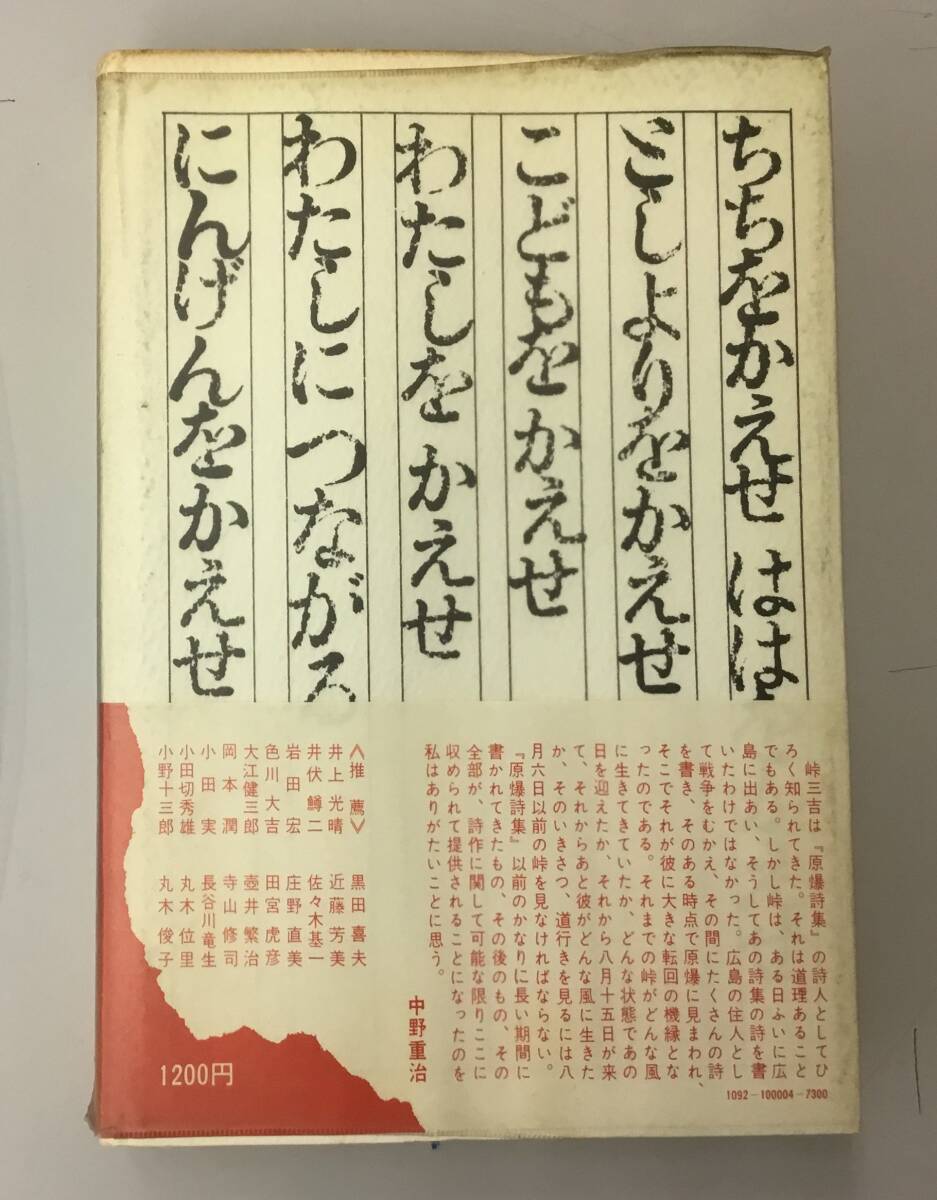 ちちをかえせ はは
としよりをかえせ
こどもをかえせ
わたしをかえせ
わたしにつながる
にんげんをかえせ
峠三吉は『原爆詩集』の詩人としてひ
ろく知られてきた。それは道理あること
でもある。しかし峠は、ある日ふいに広
島に出あい、そうしてあの詩集の詩を書
いたわけではなかった。広島の住人とし
て戦争をむかえ、その間にたくさんの詩
を書き、そのある時点で原爆に見まわれ、
そこでそれが彼に大きな転回の機縁とな
ったのである。それまでの峠がどんな風
に生きてきていたか、どんな状態であの
日を迎えたか、それから八月十五日が来
て、それからあと彼がどんな風に生きた
か、そのいきさつ、道行きを見るには八
月六日以前の峠を見なければならない。
『原爆詩集』以前のかなりに長い期間に
書かれてきたもの、その後のもの、その
全部が、詩作に関して可能な限りここに
収められて提供されることになったのを
私はありがたいことに思う。
中野重治
〈推薦〉
井上光晴 黒田喜夫
井伏鱒二 近藤芳美
岩田宏 佐々木基一
色川大吉 庄野直美
大江健三郎 田宮虎彦
岡本潤 壺井繁治
小田実 寺山修司
小田切秀雄 長谷川竜生
小野十三郎 丸木位里
丸木俊子
1200円
1092-100004-7300